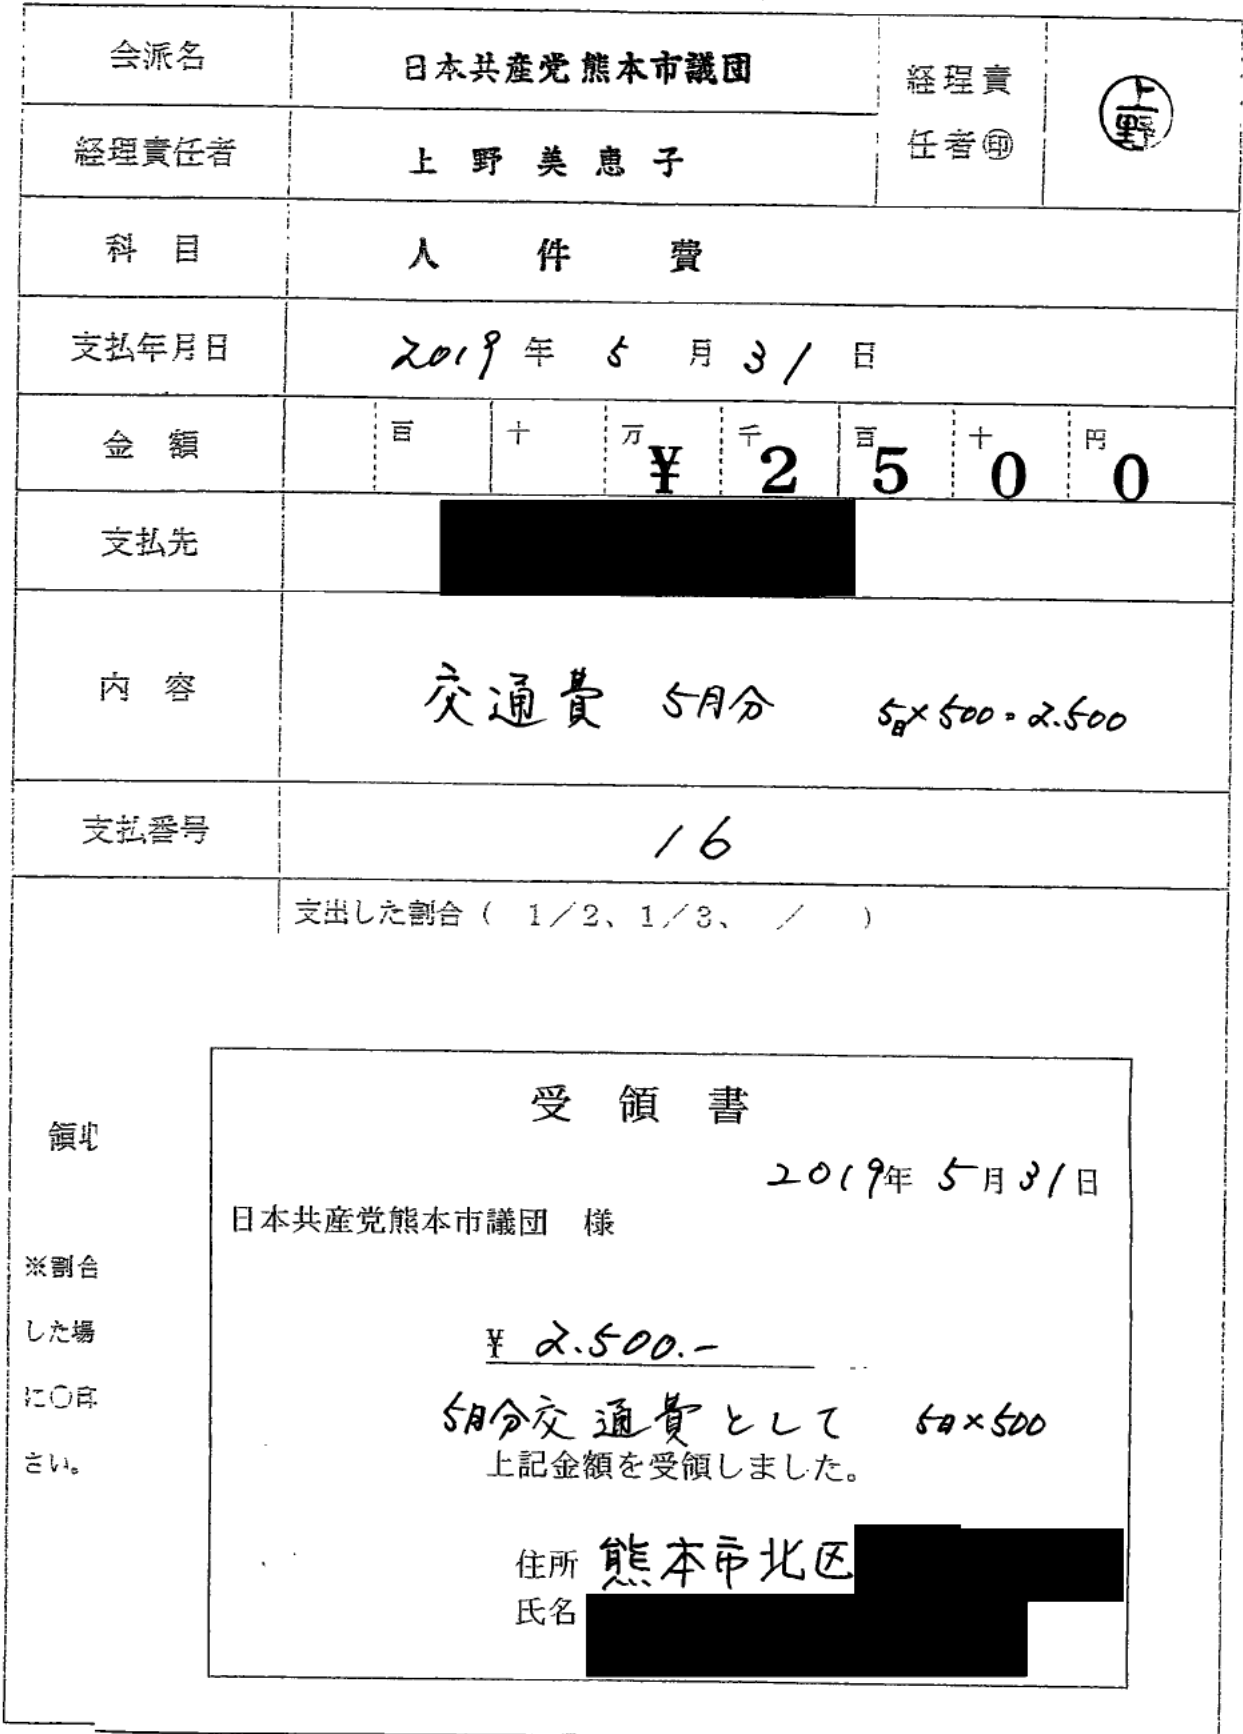 会派名 日本共産党熊本市議団 経理責任者㊞ 上野
経理責任者 上野美恵子
科目 人件費
支払年月日 2019年5月31日
金額 百 十 万 千 百 十 円 ¥2500
支払先
内容 交通費 5月分 5日×500=2.500
支払番号 16
支出した割合（ 1／2、1／3、 ／ ）
受領書
領収
2019年5月31日
日本共産党熊本市議団 様
※割合
した場
¥ 2.500.-
に○印
5月分交通費として 5日×500
さい。
上記金額を受領しました。
住所 熊本市北区
氏名